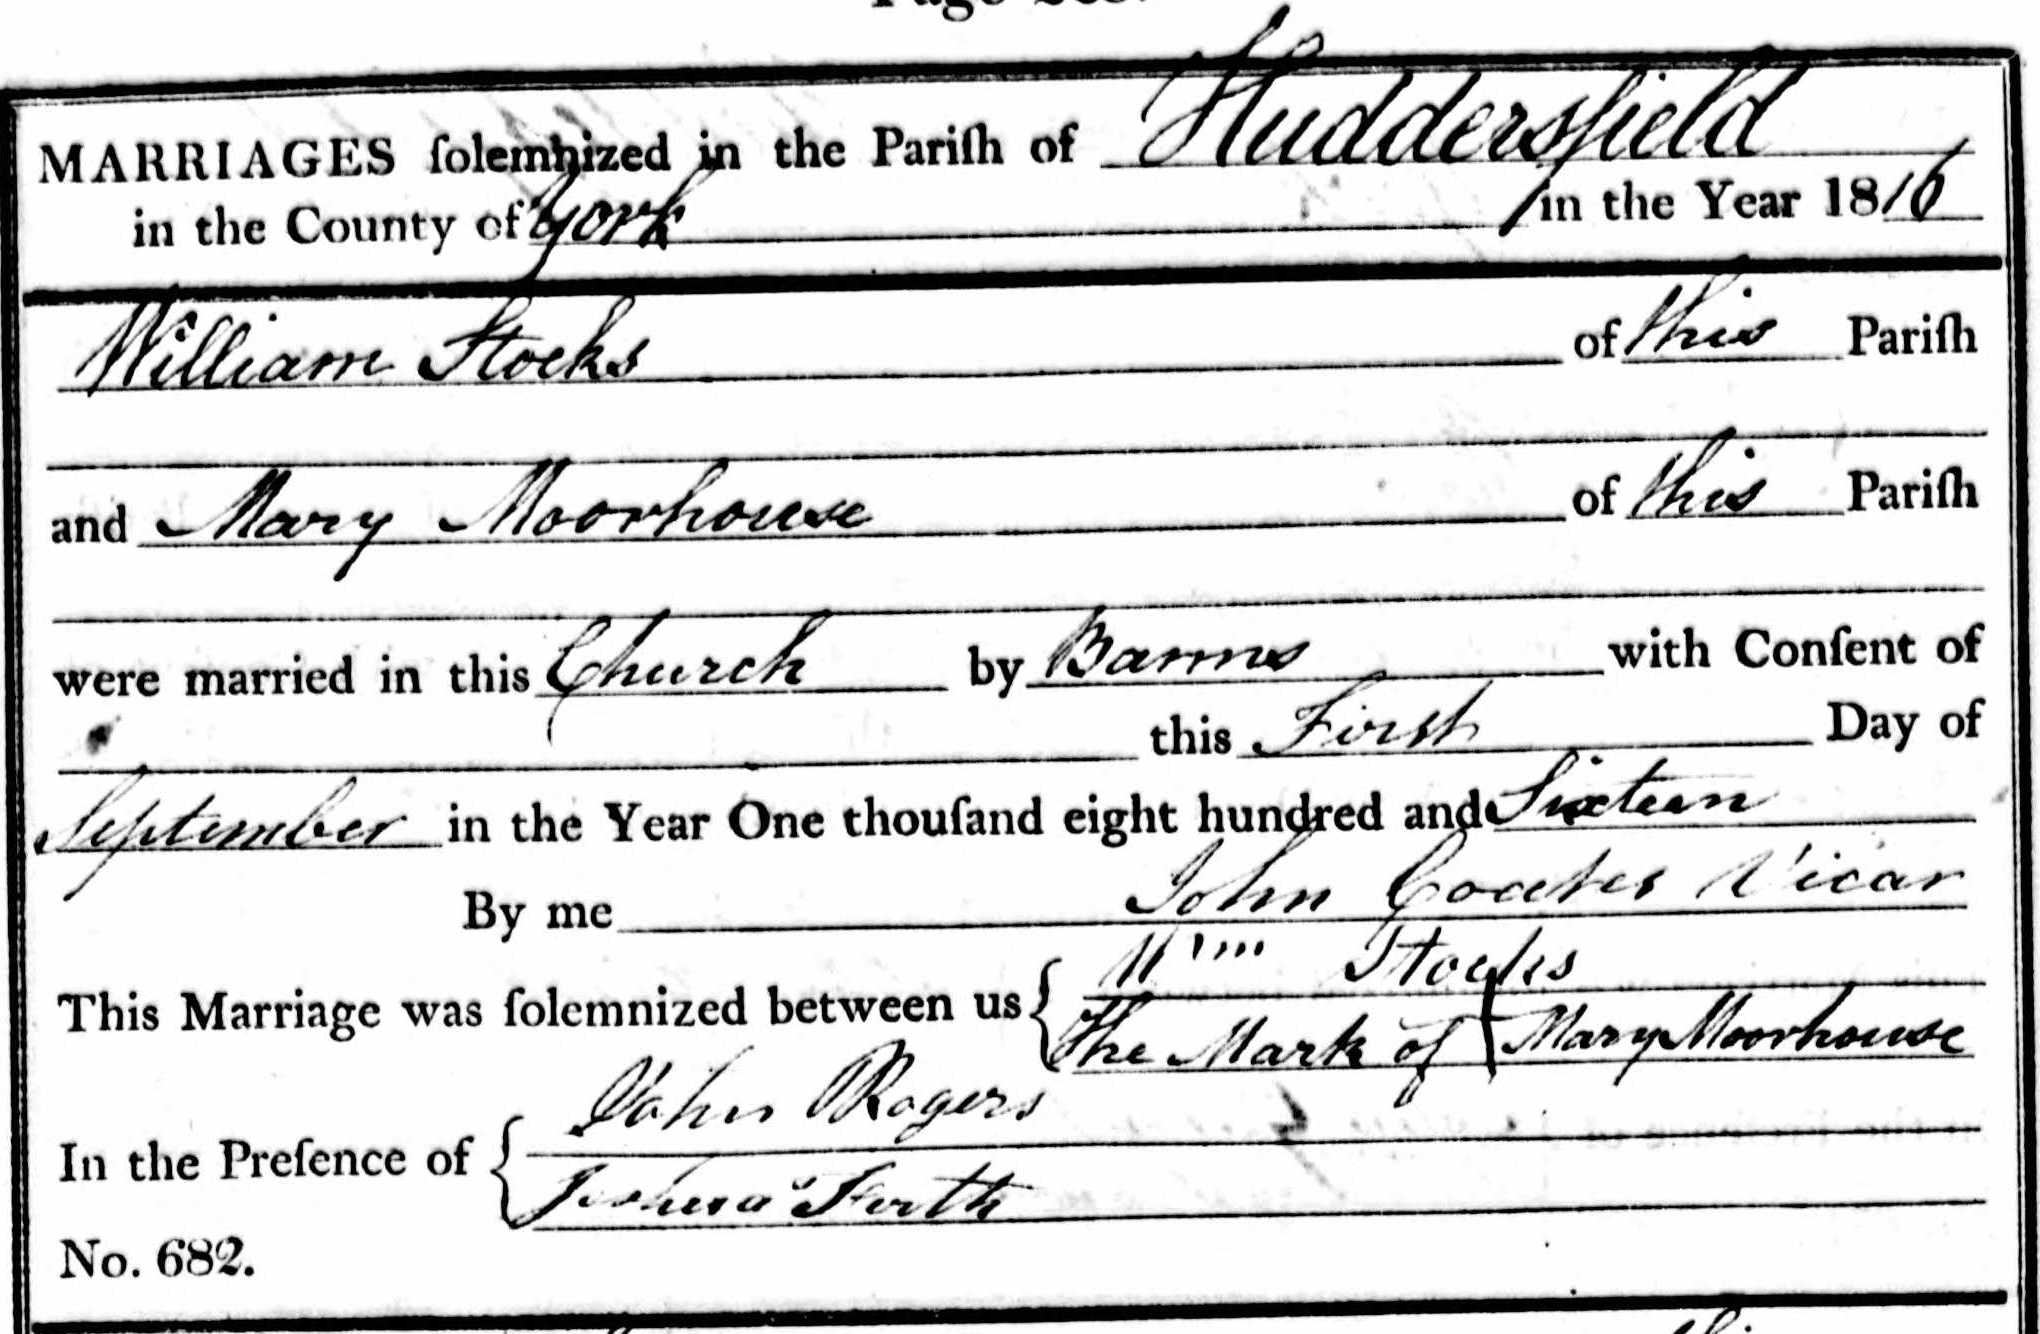 Page
MARRIAGES ſolemnized in the Pariſh of Huddersfield
in the County of York in the Year 1816
William Stocks of this Pariſh
and Mary Moorhouse of this Pariſh
were married in this Church by Banns with Conſent of
this First Day of
September in the Year One thouſand eight hundred and Sixteen
By me John Coates Vicar
This Marriage was ſolemnized between us { Wm Stocks
The Mark of + Mary Moorhouse
In the Preſence of { John Rogers
Joshua Firth
No. 682.